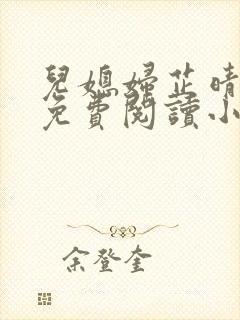 兒媳婦芷晴
免費閱讀小
余登奎